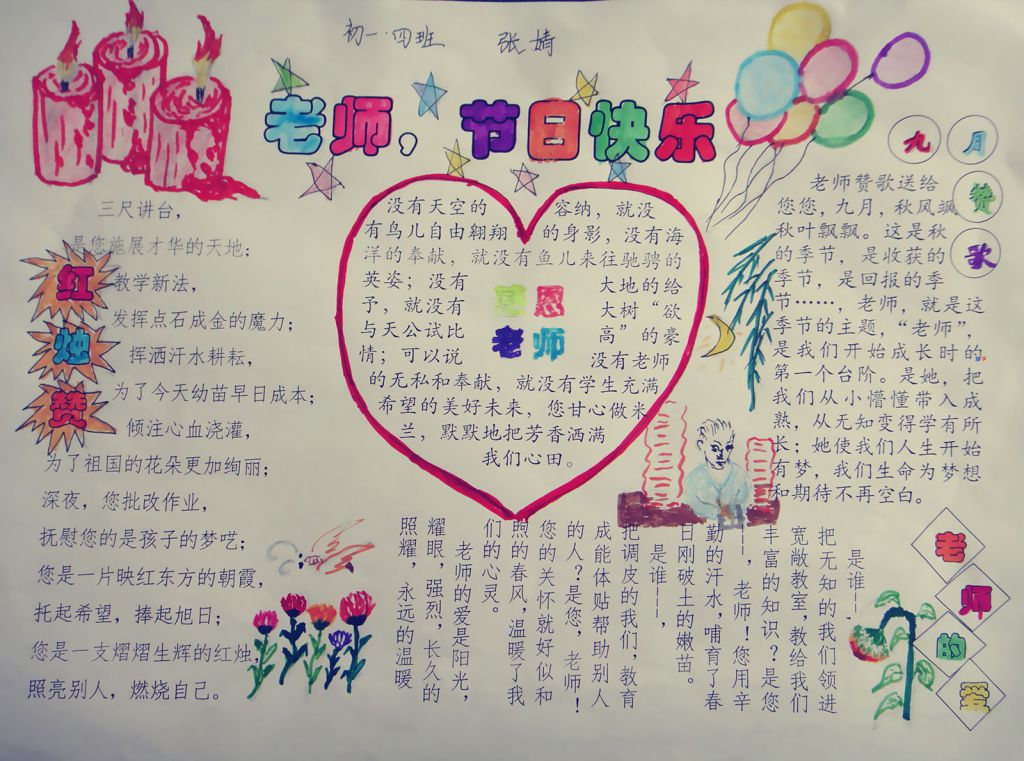 初一.四班 张婧
老师，节日快乐
红烛赞
三尺讲台，
是您施展才华的天地；
教学新法，
发挥点石成金的魔力；
挥洒汗水耕耘，
为了今天幼苗早日成本；
倾注心血浇灌，
为了祖国的花朵更加绚丽；
深夜，您批改作业，
抚慰您的是孩子的梦呓；
您是一片映红东方的朝霞，
托起希望，捧起旭日；
您是一支熠熠生辉的红烛，
照亮别人，燃烧自己。
感恩
老师
没有天空的容纳，就没
有鸟儿自由翱翔的身影，没有海
洋的奉献，就没有鱼儿来往驰骋的
英姿；没有大地的给
予，就没有大树“欲
与天公试比高”的豪
情；可以说没有老师
的无私和奉献，就没有学生充满
希望的美好未来，您甘心做米
兰，默默地把芳香洒满
我们心田。
九月赞歌
老师赞歌送给
您您，九月，秋风飒
秋叶飘飘。这是秋
的季节，是收获的
季节，是回报的季
节……，老师，就是这
季节的主题，“老师”，
是我们开始成长时的
第一个台阶。是她，把
我们从小懵懂带入成
熟，从无知变得学有所
长；她使我们人生开始
有梦，我们生命为梦想
和期待不再空白。
老师的爱
是谁——
把无知的我们领进
宽敞教室，教给我们
丰富的知识？是您
——，老师！您用辛
勤的汗水，哺育了春
日刚破土的嫩苗。
是谁——，
把调皮的我们，教育
成能体贴帮助别人
的人？是您，老师！
您的关怀就好似和
煦的春风，温暖了我
们的心灵。
老师的爱是阳光，
耀眼，强烈，长久的
照耀，永远的温暖